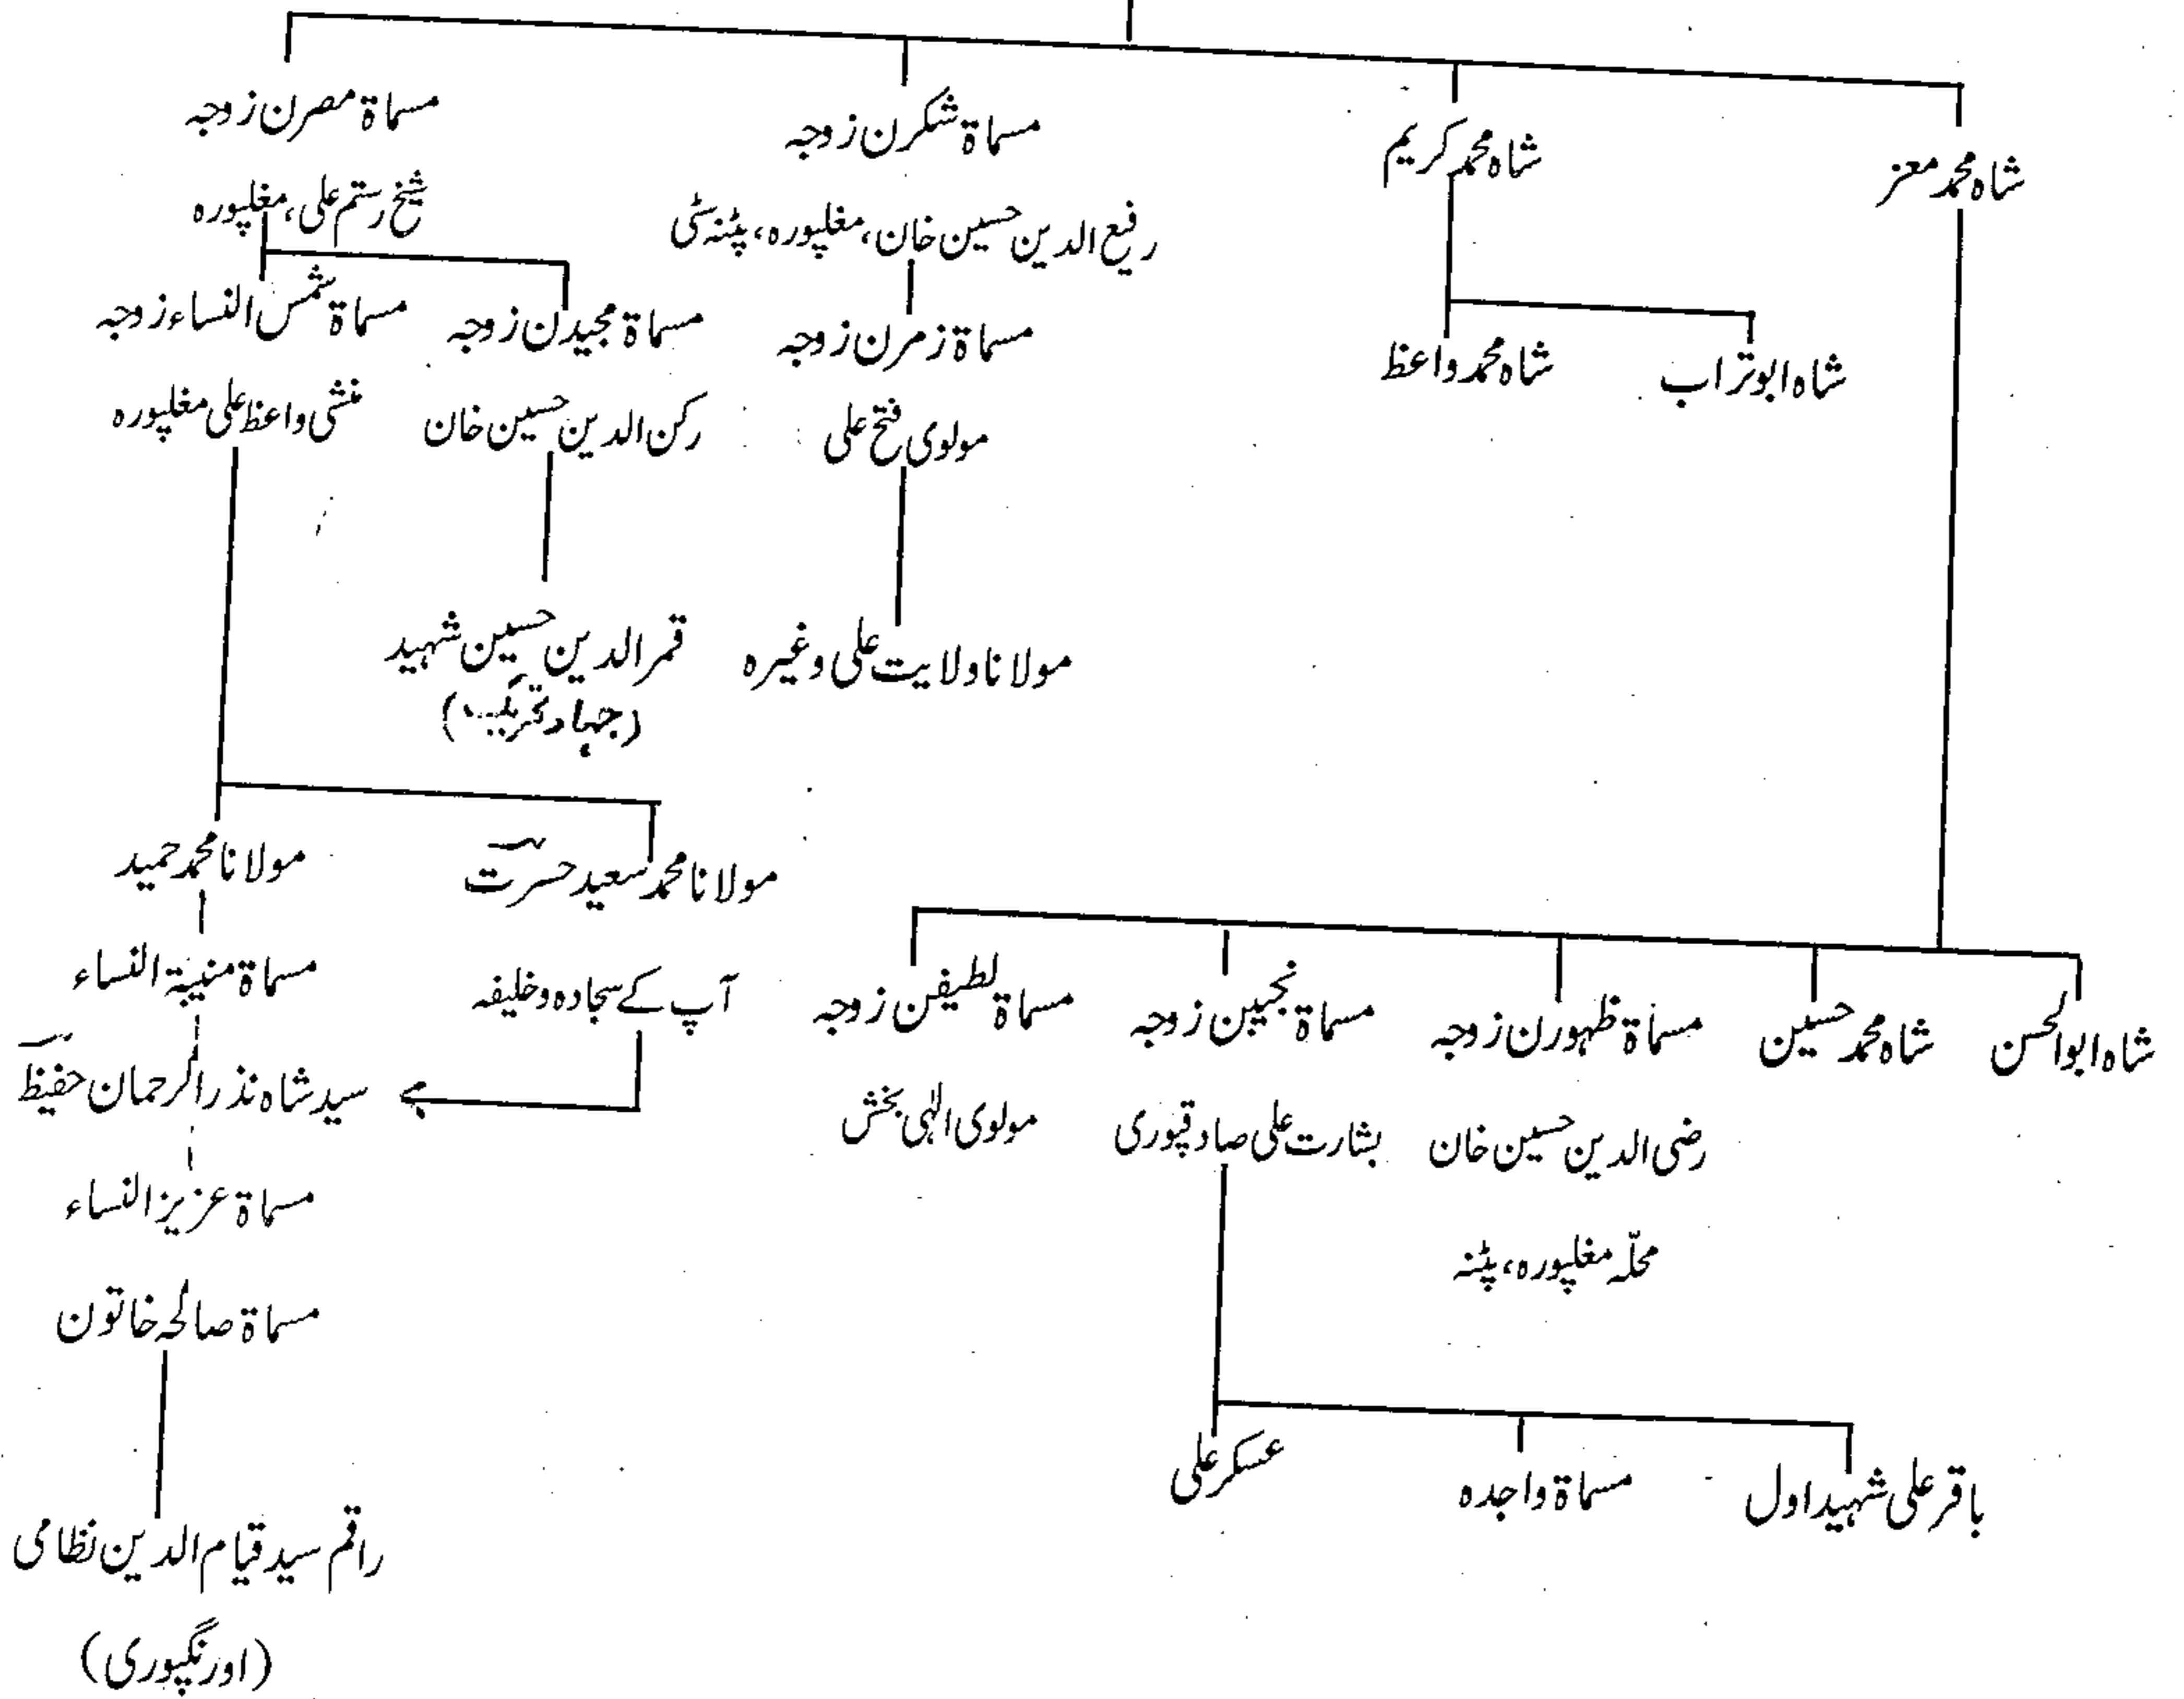 شاہ محمد معز
شاہ محمد کریم
مسماۃ شکرن زوجہ
رفیع الدین حسین خان، مغلپورہ، پٹنہ سٹی
مسماۃ مصرن زوجہ
شیخ رستم علی، مغلپورہ
شاہ ابوتراب
شاہ محمد واعظ
مسماۃ زمرن زوجہ
مولوی فتح علی
مسماۃ مجیدن زوجہ
رکن الدین حسین خان
مسماۃ شمس النساء زوجہ
منشی واعظ علی مغلپورہ
مولانا ولایت علی وغیرہ
قمر الدین حسین شہید
(جہاد
مولانا محمد سعید حسرت
آپ کے سجادہ و خلیفہ
مولانا محمد حمید
مسماۃ منیبۃ النساء
سید شاہ نذر الرحمان حفیظ
مسماۃ عزیز النساء
مسماۃ صالحہ خاتون
راقم سید قیام الدین نظامی
(اورنگپوری)
شاہ ابوالحسن
شاہ محمد حسین
مسماۃ ظہورن زوجہ
رضی الدین حسین خان
محلّہ مغلپورہ، پٹنہ
مسماۃ نجیبن زوجہ
بشارت علی صادقپوری
مسماۃ لطیفن زوجہ
مولوی الٰہی بخش
باقر علی شہید اول
مسماۃ واجدہ
عسکر علی